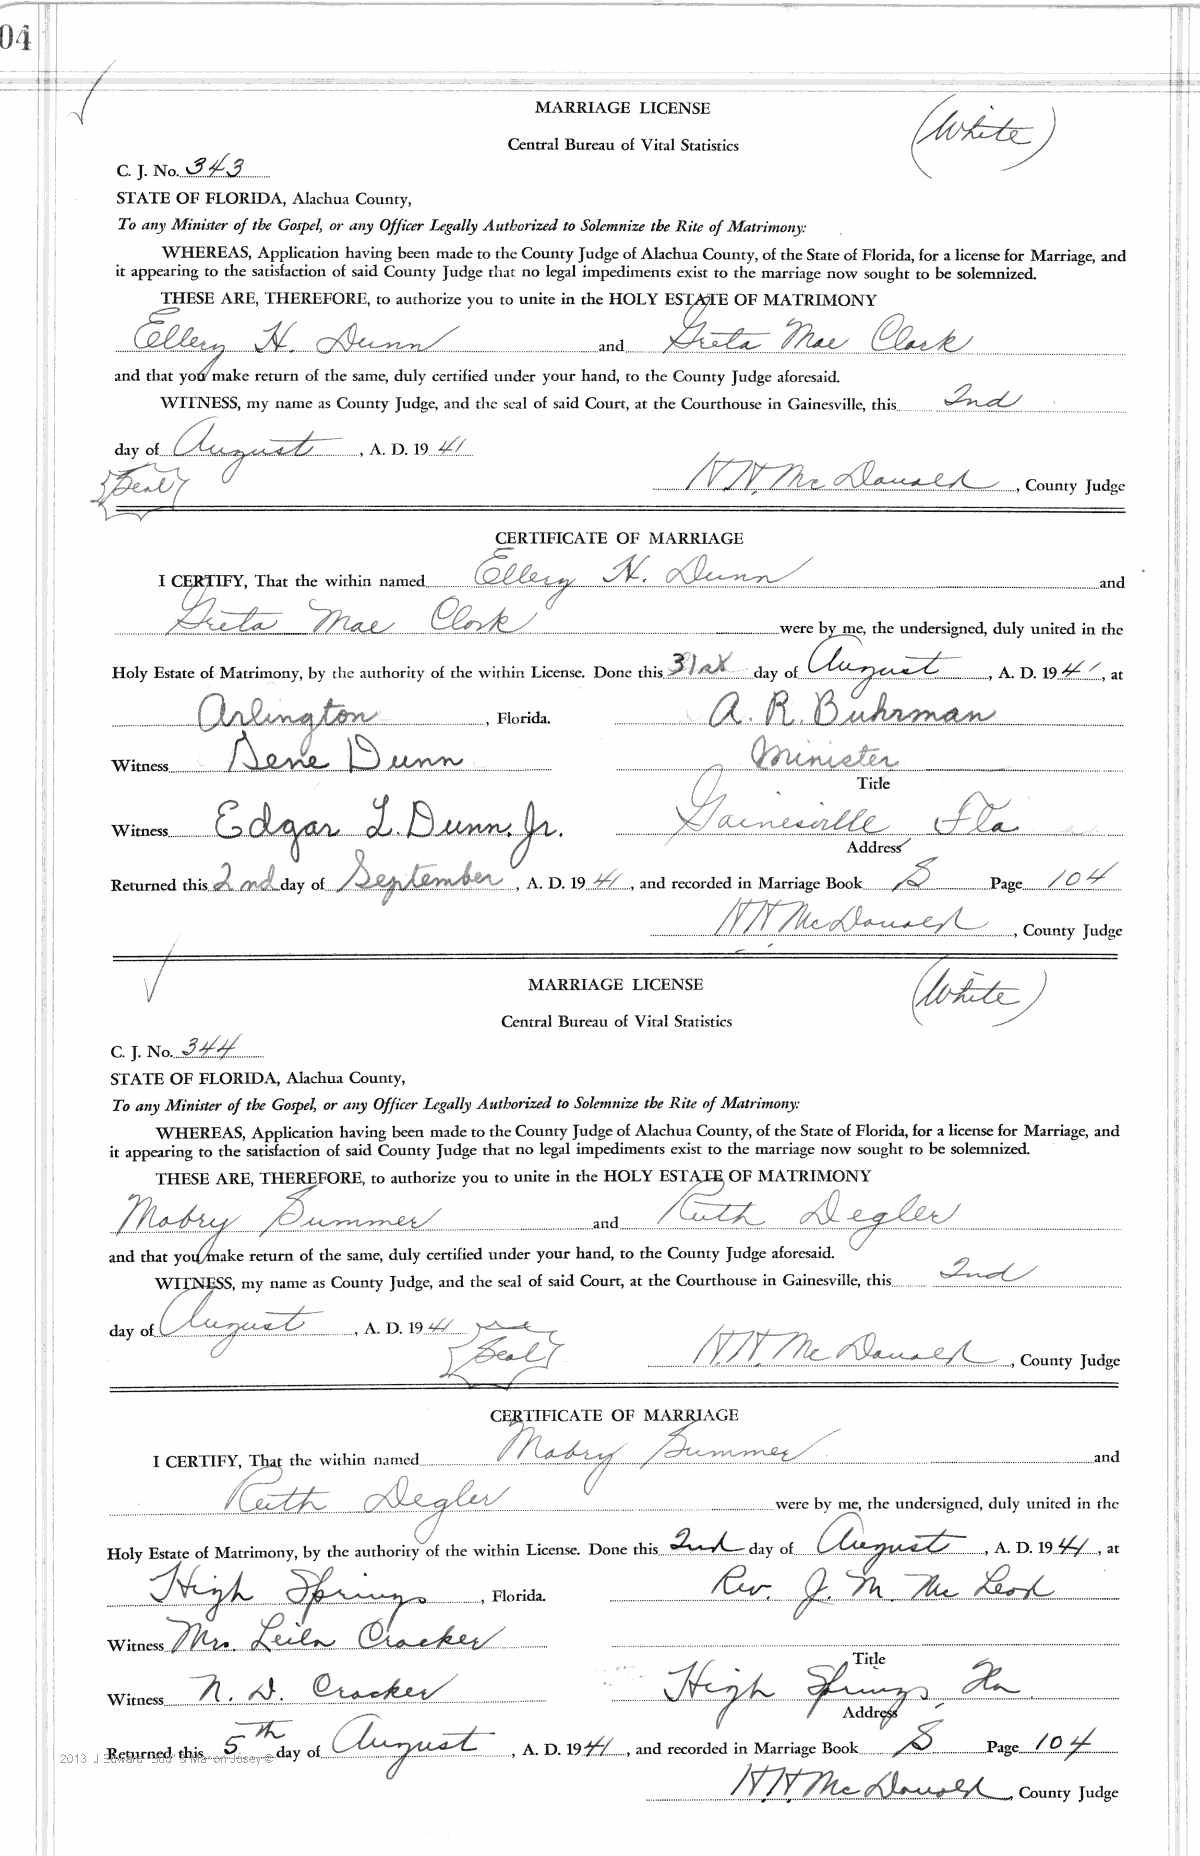 04
MARRIAGE LICENSE
(White)
Central Bureau of Vital Statistics
C. J. No. 343
STATE OF FLORIDA, Alachua County,
To any Minister of the Gospel, or any Officer Legally Authorized to Solemnize the Rite of Matrimony:
WHEREAS, Application having been made to the County Judge of Alachua County, of the State of Florida, for a license for Marriage, and
it appearing to the satisfaction of said County Judge that no legal impediments exist to the marriage now sought to be solemnized.
THESE ARE, THEREFORE, to authorize you to unite in the HOLY ESTATE OF MATRIMONY
Ellery H. Dunn and Greta Mae Clark
and that you make return of the same, duly certified under your hand, to the County Judge aforesaid.
WITNESS, my name as County Judge, and the seal of said Court, at the Courthouse in Gainesville, this 2nd
day of August, A. D. 19 41
Seal
H.H. McDonald, County Judge
CERTIFICATE OF MARRIAGE
I CERTIFY, That the within named Ellery H. Dunn and
Greta Mae Clark were by me, the undersigned, duly united in the
Holy Estate of Matrimony, by the authority of the within License. Done this 31st day of August, A. D. 19 41, at
Arlington, Florida. A. R. Buhrman
Witness Gene Dunn Minister
Title
Witness Edgar L. Dunn, Jr. Gainesville, Fla
Address
Returned this 2nd day of September, A. D. 19 41, and recorded in Marriage Book S Page 104
H H McDonald, County Judge
MARRIAGE LICENSE
(White)
Central Bureau of Vital Statistics
C. J. No. 344
STATE OF FLORIDA, Alachua County,
To any Minister of the Gospel, or any Officer Legally Authorized to Solemnize the Rite of Matrimony:
WHEREAS, Application having been made to the County Judge of Alachua County, of the State of Florida, for a license for Marriage, and
it appearing to the satisfaction of said County Judge that no legal impediments exist to the marriage now sought to be solemnized.
THESE ARE, THEREFORE, to authorize you to unite in the HOLY ESTATE OF MATRIMONY
Mabry Summer and Ruth Degler
and that you make return of the same, duly certified under your hand, to the County Judge aforesaid.
WITNESS, my name as County Judge, and the seal of said Court, at the Courthouse in Gainesville, this 2nd
day of August, A. D. 19 41
Seal
H.H. McDonald, County Judge
CERTIFICATE OF MARRIAGE
I CERTIFY, That the within named Mabry Summer and
Ruth Degler were by me, the undersigned, duly united in the
Holy Estate of Matrimony, by the authority of the within License. Done this 2nd day of August, A. D. 19 41, at
High Springs, Florida. Rev. J. M. McLeod
Witness Mrs. Leila Crocker
Title
Witness N. D. Crocker High Springs, Fla.
Address
Returned this 5th day of August, A. D. 19 41, and recorded in Marriage Book S Page 104
2013 J Edward "Bud" & Marion Josey ©
H.H. McDonald, County Judge